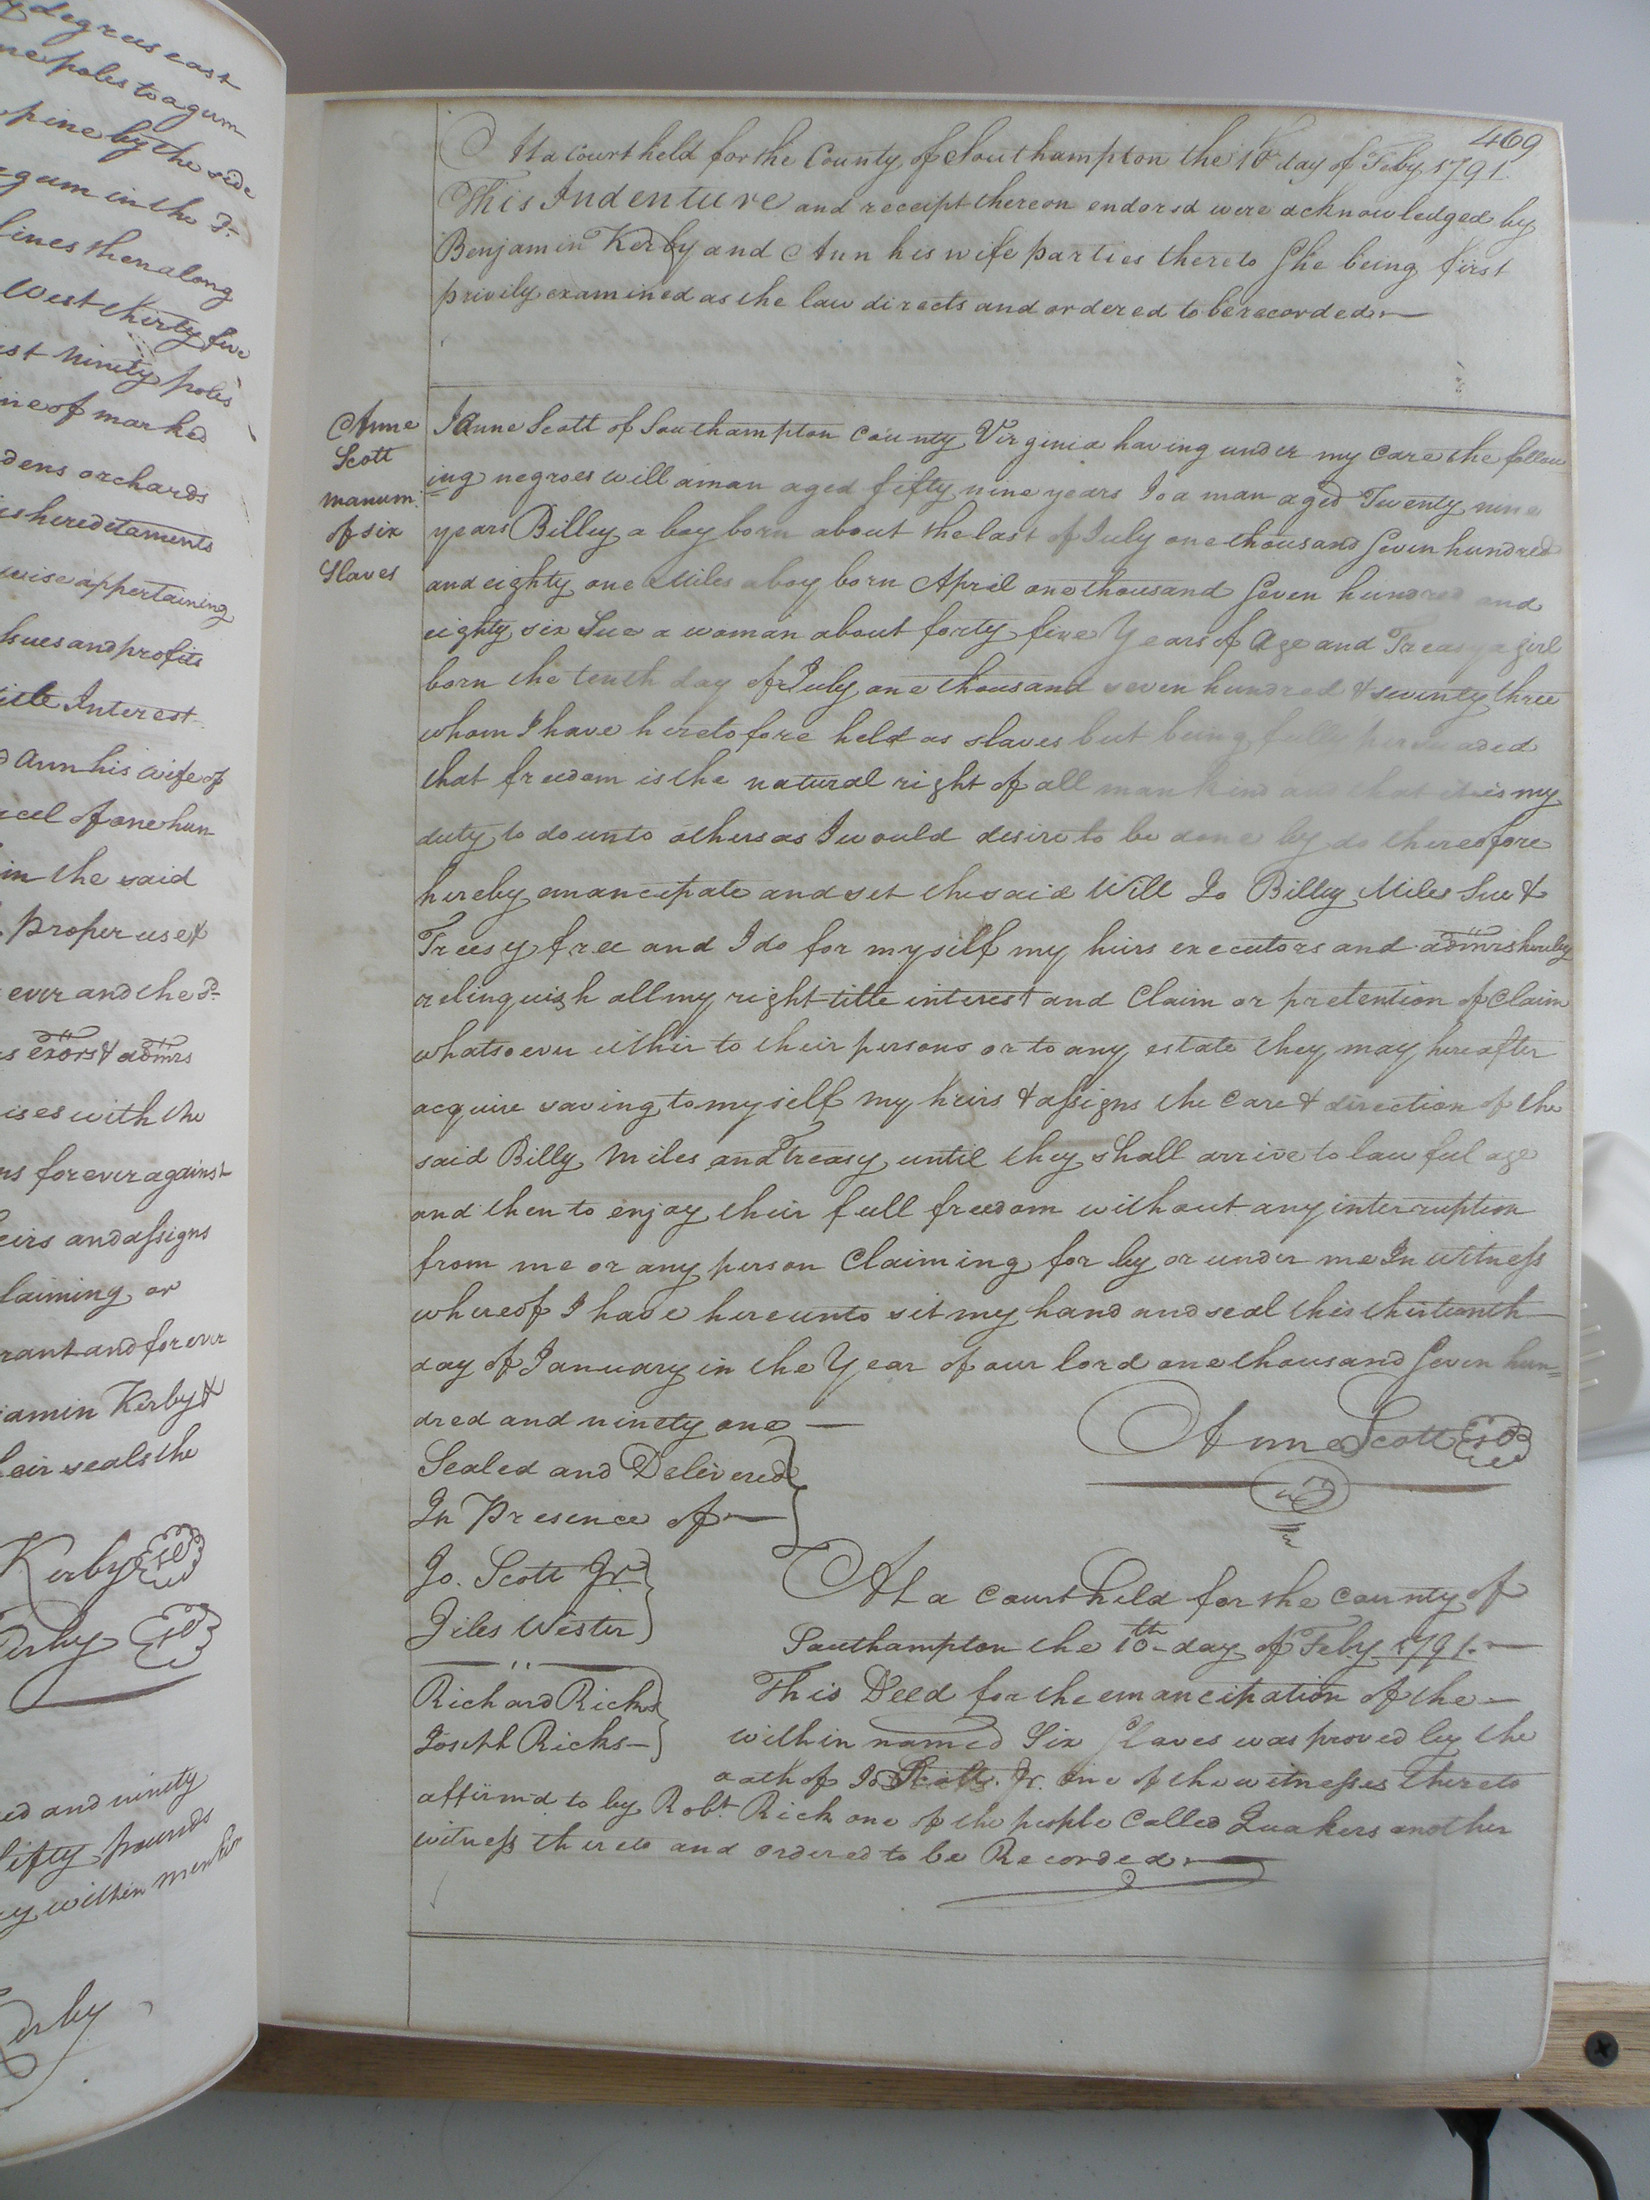 y degrees east
ne poles to a gum
pine by the side
gum in the Sd
lines then along
West thirty five
st Ninety poles
ine of marked
dens orchards
is hereditaments
wise appertaining
ssues and profits
itle Interest
d Ann his wife of
rcel of one hun
in the said
proper use &
ever and the sd
s exors & admrs
ises with the
ns forever against
eirs and assigns
laiming or
rant and forever
jamin Kerby &
eir seals the
Kerby Seal
Kerby Seal
ed and ninety
fifty pounds
y within mention
Kerby
469
At a Court held for the County of Southampton the 10th day of Feby 1791.
This Indenture and receipt thereon endorsd were acknowledged by
Benjamin Kerby and Ann his wife parties thereto She being first
privily examined as the law directs and ordered to be recorded
Anne
Scott
manum.
of six
Slaves
I Anne Scott of Southampton County Virginia having under my Care the follow
ing negroes will a man aged fifty nine years Jo a man aged Twenty nine
years Billey a boy born about the last of July one thousand Seven hundred
and eighty one Miles a boy born April one thousand Seven hundred and
eighty six Sue a woman about forty five Years of Age and Treasy a girl
born the tenth day of July one thousand seven hundred & seventy three
whom I have heretofore held as slaves but being fully persuaded
that freedom is the natural right of all mankind and that it is my
duty to do unto others as I would desire to be done by do thereofore
hereby emancipate and set the said Will Jo Billy Miles Sue &
Treesy free and I do for myself my heirs executors and admrs hereby
relinquish all my right title interest and Claim or pretention of Claim
whatsoever either to their persons or to any estate they may hereafter
acquire saving to myself my heirs & assigns the Care & direction of the
said Billy Miles and Treasy until they shall arrive to lawful age
and then to enjoy their full freedom without any interruption
from me or any person Claiming for by or under me In witness
whereof I have hereunto set my hand and seal this thirteenth
day of January in the Year of our lord one thousand Seven hun=
dred and ninety one
Anne Scott Seal
Sealed and Delivered
In Presence of
Jo. Scott Jr.
Jiles Wester
Richard Ricks
Joseph Ricks
At a Court held for the County of
Southampton the 10th day of Feby 1791.
This Deed for the emancipation of the
within named Six Slaves was proved by the
oath of Jo Scott. Jr. one of the witnesses thereto
affirmd to by Robt. Rick one of the people Called Quakers another
witness thereto and ordered to be Recorded